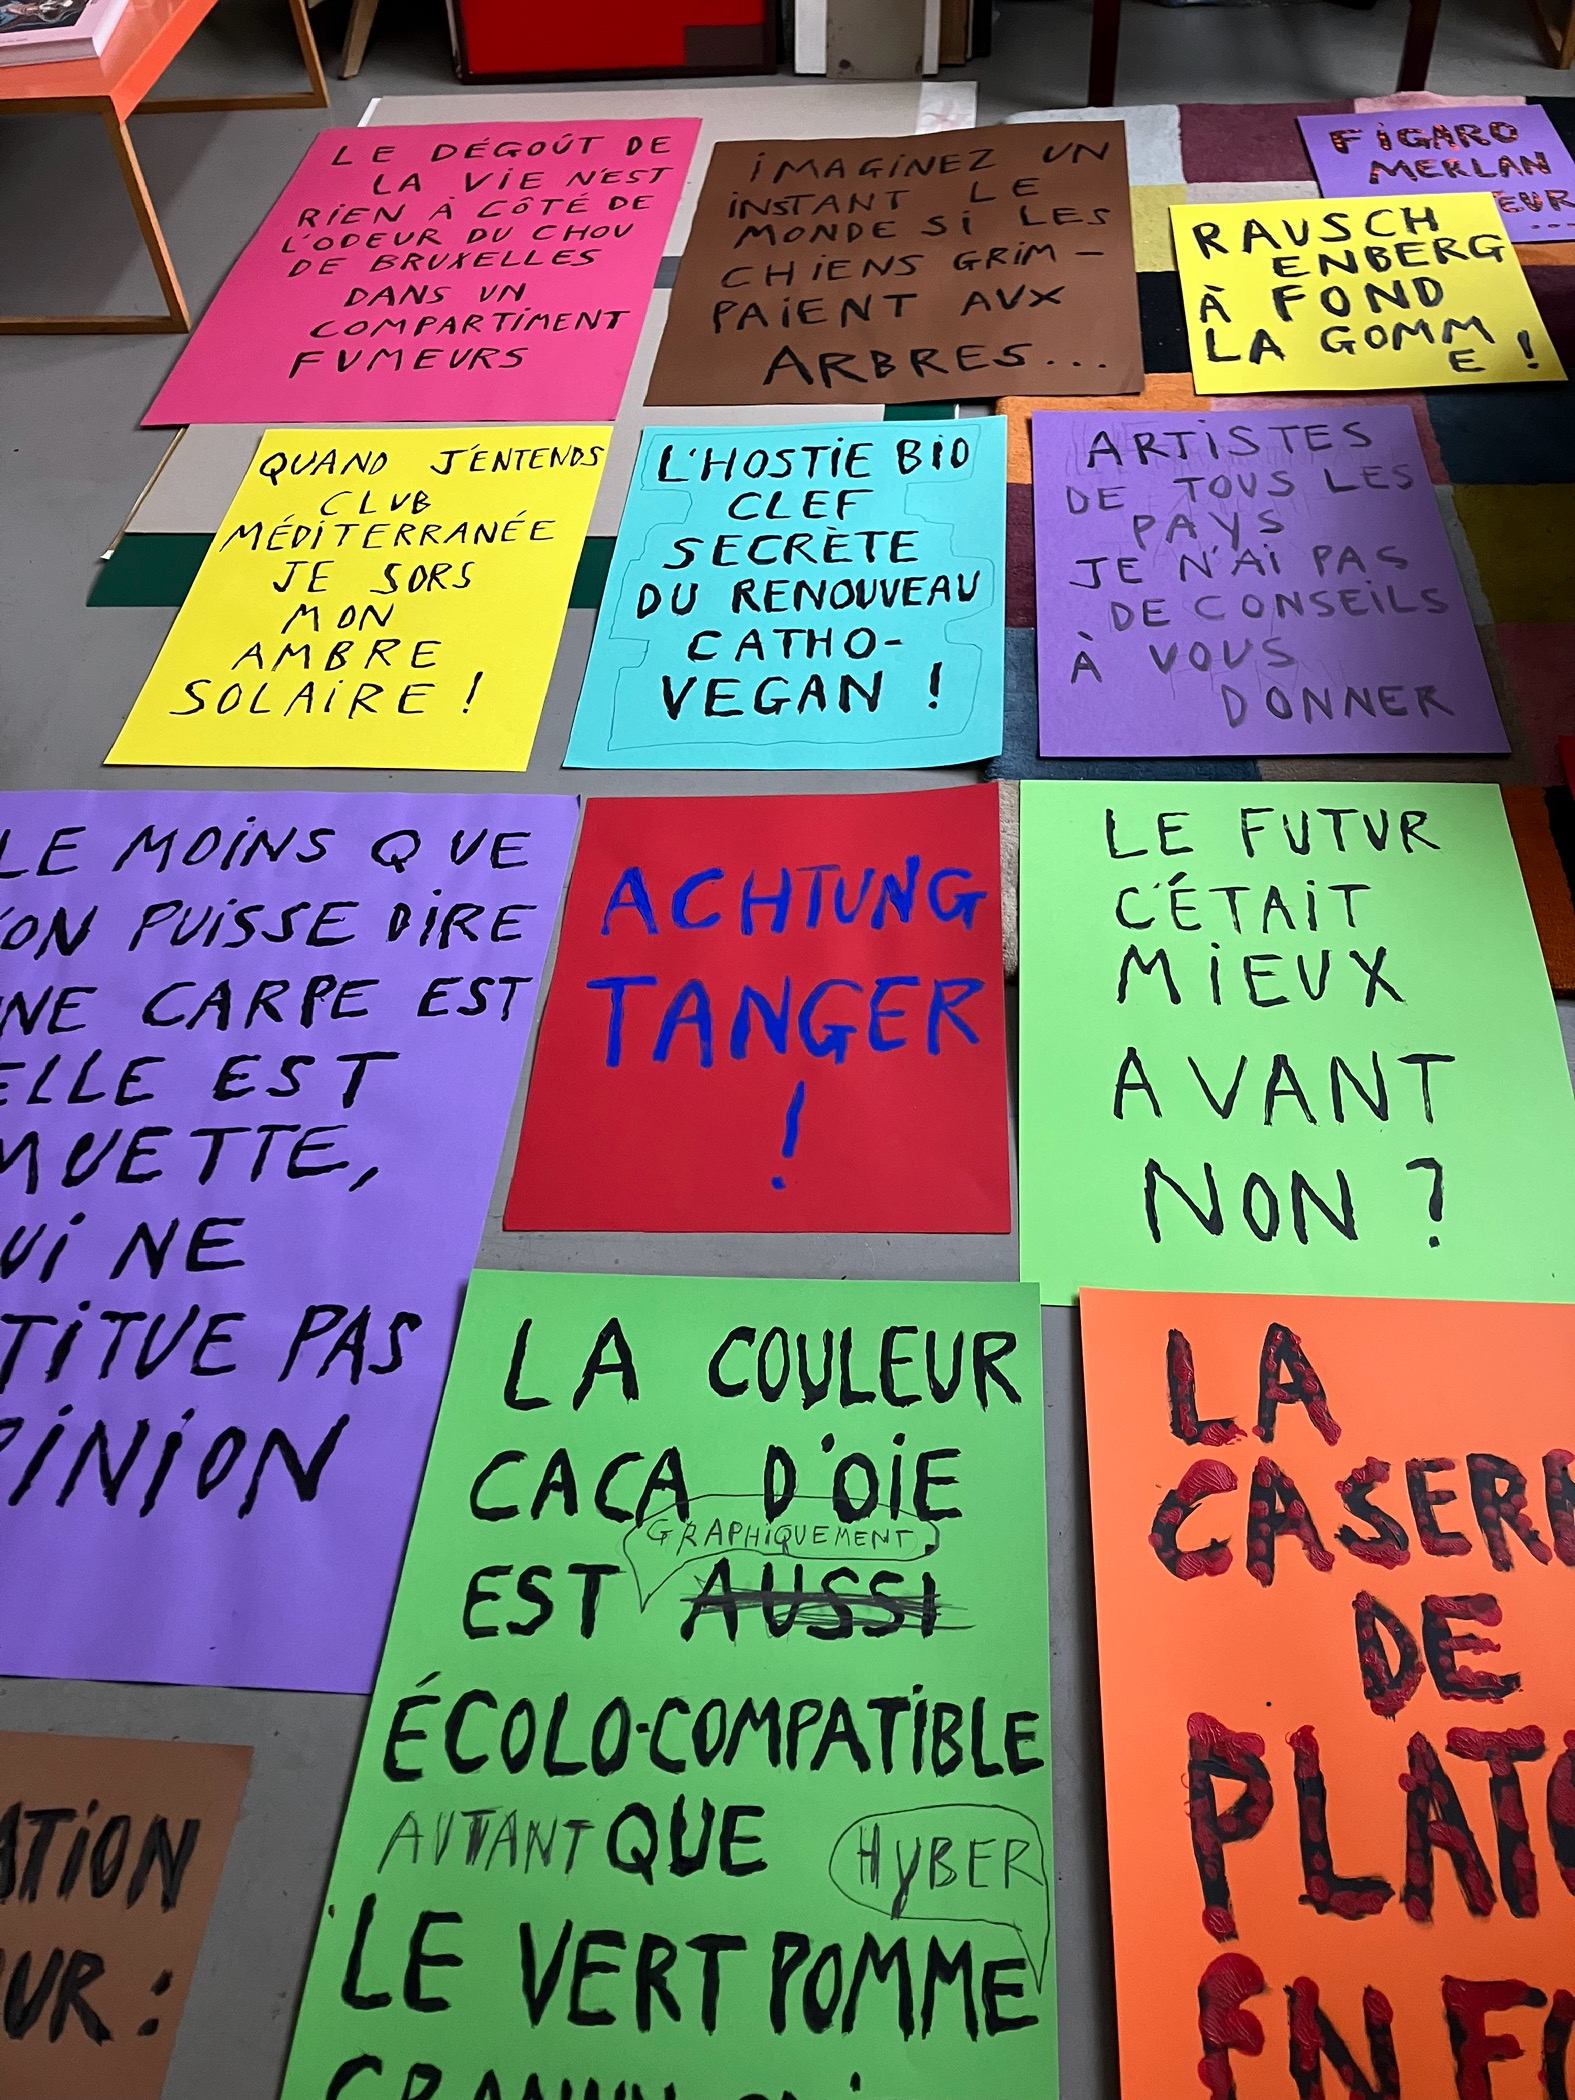 LE DÉGOÛT DE
LA VIE N'EST
RIEN À CÔTÉ DE
L'ODEUR DU CHOU
DE BRUXELLES
DANS UN
COMPARTIMENT
FUMEURS
IMAGINEZ UN
INSTANT LE
MONDE SI LES
CHIENS GRIM-
PAIENT AUX
ARBRES...
FIGARO
MERLAN
EUR
...
RAUSCH
ENBERG
À FOND
LA GOMM
E !
QUAND J'ENTENDS
CLUB
MÉDITERRANÉE
JE SORS
MON
AMBRE
SOLAIRE !
L'HOSTIE BIO
CLEF
SECRÈTE
DU RENOUVEAU
CATHO-
VEGAN !
ARTISTES
DE TOUS LES
PAYS
JE N'AI PAS
DE CONSEILS
À VOUS
DONNER
LE MOINS QUE
'ON PUISSE DIRE
NE CARPE EST
ELLE EST
MUETTE,
UI NE
TITUE PAS
PINION
ACHTUNG
TANGER
!
LE FUTUR
C'ÉTAIT
MIEUX
AVANT
NON ?
LA COULEUR
CACA D'OIE
GRAPHIQUEMENT
EST AUSSI
ÉCOLO-COMPATIBLE
AUTANT QUE
HYBER
LE VERT POMME
LA
CASER
DE
PLAT
EN
ATION
UR :